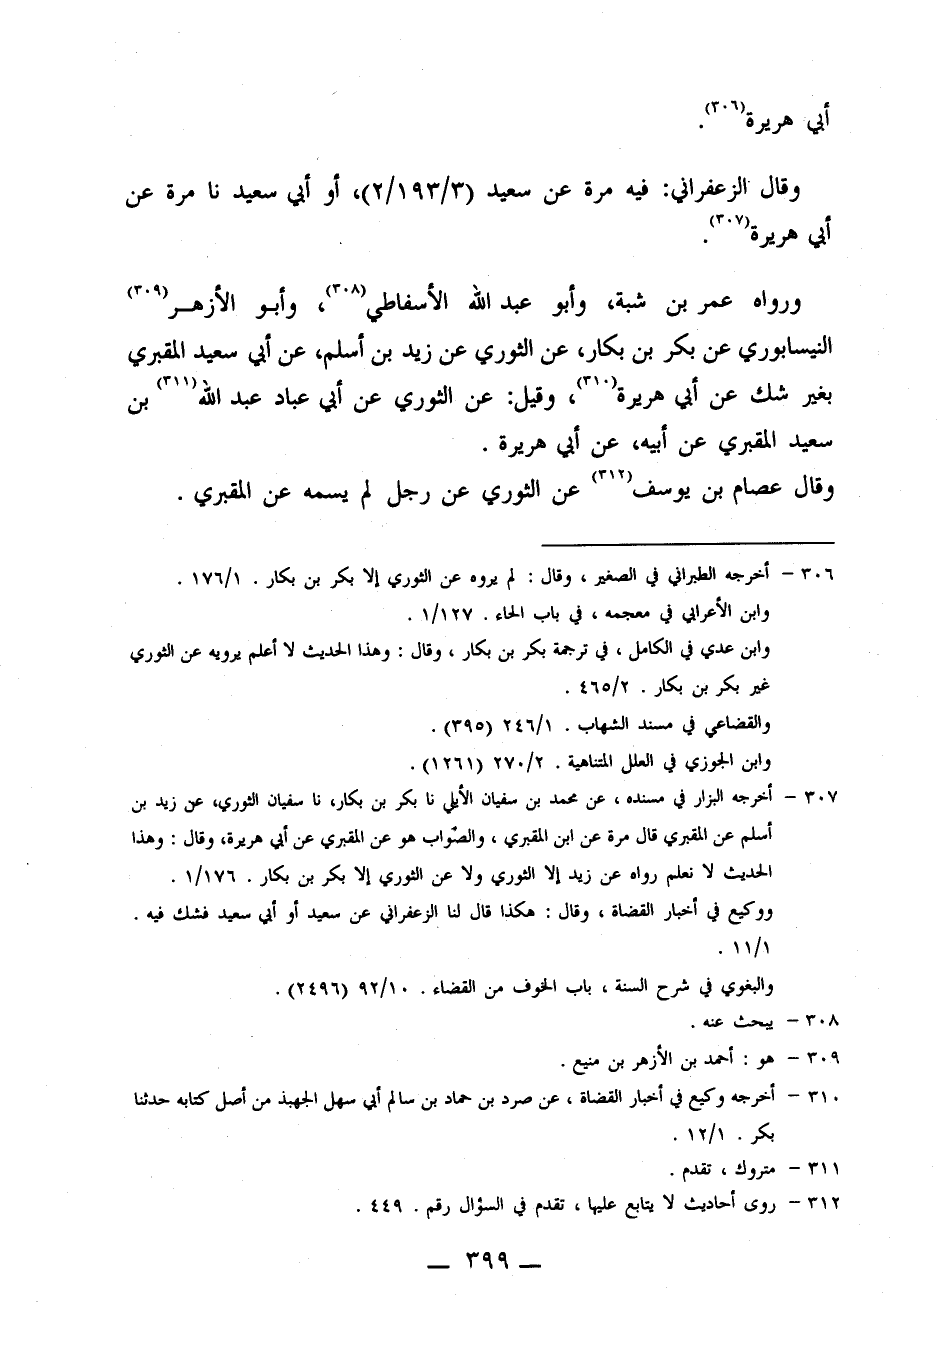 أبي هريرة(٣٠٦).
وقال الزعفراني: فيه مرة عن سعيد (٢/١٩٣/٣)، أو أبي سعيد نا مرة عن
أبي هريرة(٣٠٧).
ورواه عمر بن شبة، وأبو عبد الله الأسفاطي(٣٠٨)، وأبو الأزهر(٣٠٩)
النيسابوري عن بكر بن بكار، عن الثوري عن زيد بن أسلم، عن أبي سعيد المقبري
بغير شك عن أبي هريرة(٣١٠)، وقيل: عن الثوري عن أبي عباد عبد الله(٣١١) بن
سعيد المقبري عن أبيه، عن أبي هريرة .
وقال عصام بن يوسف(٣١٢) عن الثوري عن رجل لم يسمه عن المقبري .
٣٠٦ – أخرجه الطبراني في الصغير ، وقال : لم يروه عن الثوري إلا بكر بن بكار . ١٧٦/١ .
وابن الأعرابي في معجمه ، في باب الحاء . ١/١٢٧ .
وابن عدي في الكامل ، في ترجمة بكر بن بكار ، وقال : وهذا الحديث لا أعلم يرويه عن الثوري
غير بكر بن بكار . ٤٦٥/٢ .
والقضاعي في مسند الشهاب . ٢٤٦/١ (٣٩٥) .
وابن الجوزي في العلل المتناهية . ٢٧٠/٢ (١٢٦١) .
٣٠٧ – أخرجه البزار في مسنده ، عن محمد بن سفيان الأيلي نا بكر بن بكار، نا سفيان الثوري، عن زيد بن
أسلم عن المقبري قال مرة عن ابن المقبري ، والصّواب هو عن المقبري عن أبي هريرة، وقال : وهذا
الحديث لا نعلم رواه عن زيد إلا الثوري ولا عن الثوري إلا بكر بن بكار . ١/١٧٦ .
ووكيع في أخبار القضاة ، وقال : هكذا قال لنا الزعفراني عن سعيد أو أبي سعيد فشك فيه .
١١/١ .
والبغوي في شرح السنة ، باب الخوف من القضاء . ٩٢/١٠ (٢٤٩٦) .
٣٠٨ – يبحث عنه .
٣٠٩ – هو : أحمد بن الأزهر بن منيع .
٣١٠ – أخرجه وكيع في أخبار القضاة ، عن صرد بن حماد بن سالم أبي سهل الجهبذ من أصل كتابه حدثنا
بكر . ١٢/١ .
٣١١ – متروك ، تقدم .
٣١٢ – روى أحاديث لا يتابع عليها ، تقدم في السؤال رقم . ٤٤٩ .
— ٣٩٩ —